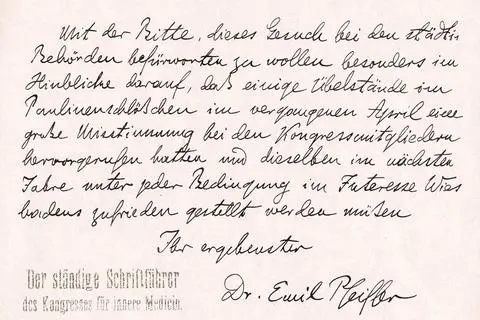 Mit der Bitte, dieses Gesuch bei den städti-
Behörden befürworten zu wollen besonders im
Hinblicke darauf, daß einige Übelstände im
Paulinenschlößchen im vergangenen April eine
große Missstimmung bei den Kongressmitgliedern
hervorgerufen hatten und dieselben im nächsten
Jahre unter jeder Bedingung im Interesse Wies
badens zufrieden gestellt werden müßen
Ihr ergebenster
Der ständige Schriftführer
des Kongresses für innere Medicin.
Dr. Emil Pfeiffer